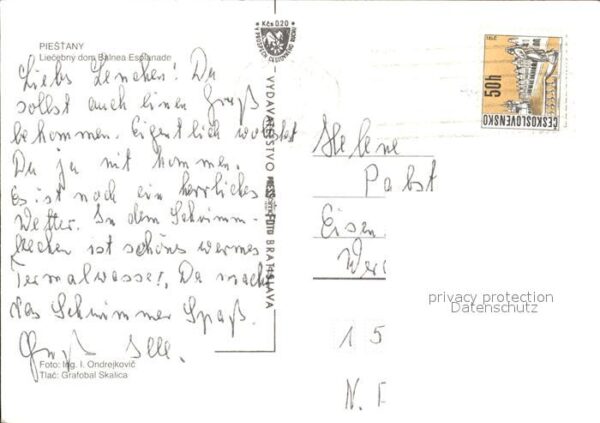 PIEŠŤANY
Liečebny dom Balnea Esplanade
Liebs Lenchen! Du
sollst auch einen Gruß
bekommen. Eigentlich wolltst
Du ja mit kommen.
Es ist noch ein herrliches
Wetter. In dem Schwimm-
becken ist schöns warmes
Termalwasser. Da macht
das Schwimmen Spaß.
Gruß
Foto: Ing. I. Ondrejkovič
Tlač: Grafobal Skalica
Kčs 0,20
VYDAVATEĽSTVO
FOTO
BRATISLAVA
50h
ČESKOSLOVENSKO
Helene
Pabst
Eisen
Wer
privacy protection
Datenschutz
1 5
N.